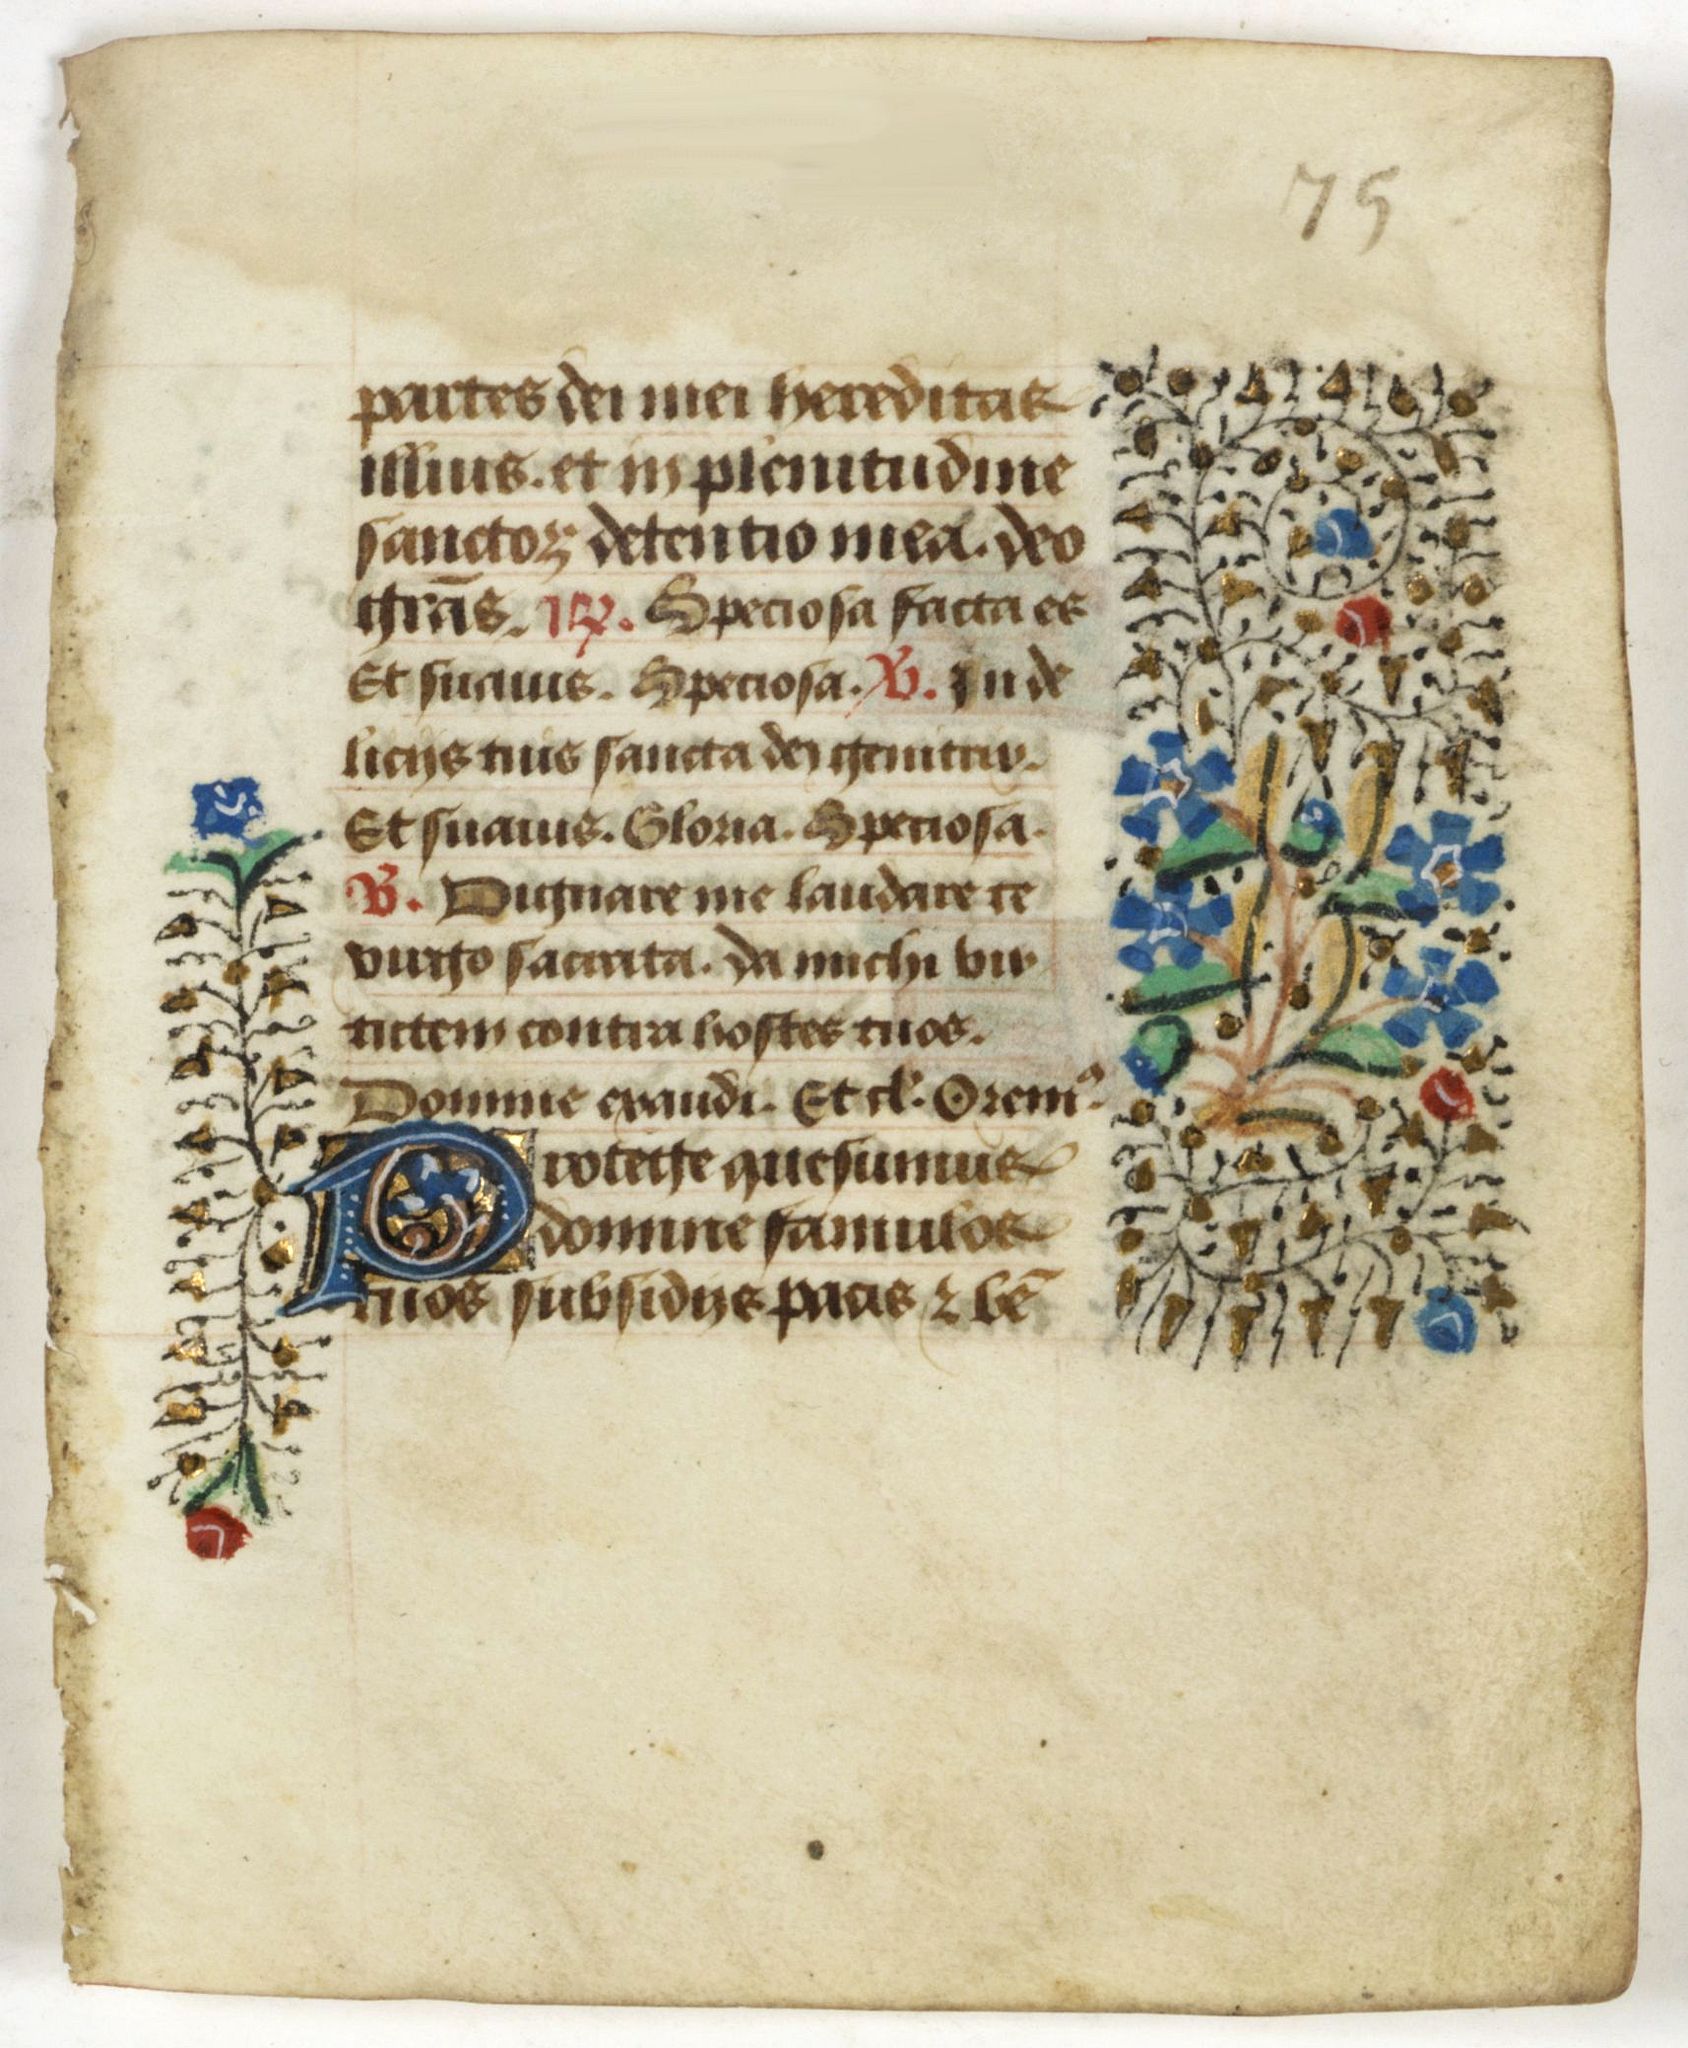 75
partes dei mei hereditas
illius. et in plenitudine
sanctoꝝ detentio mea. deo
gr̄as. ℟. Speciosa facta es
Et suauis. Speciosa. ℣. In de
licijs tuis sancta dei genitrix.
Et suauis. Gloria. Speciosa.
℣. Dignare me laudare te
virgo sacrata. da michi vir
tutem contra hostes tuos.
Domine exaudi. Et cl̄. Oremꝰ
Protege quesumus
domine famulos
tuos subsidijs pacis ⁊ bē